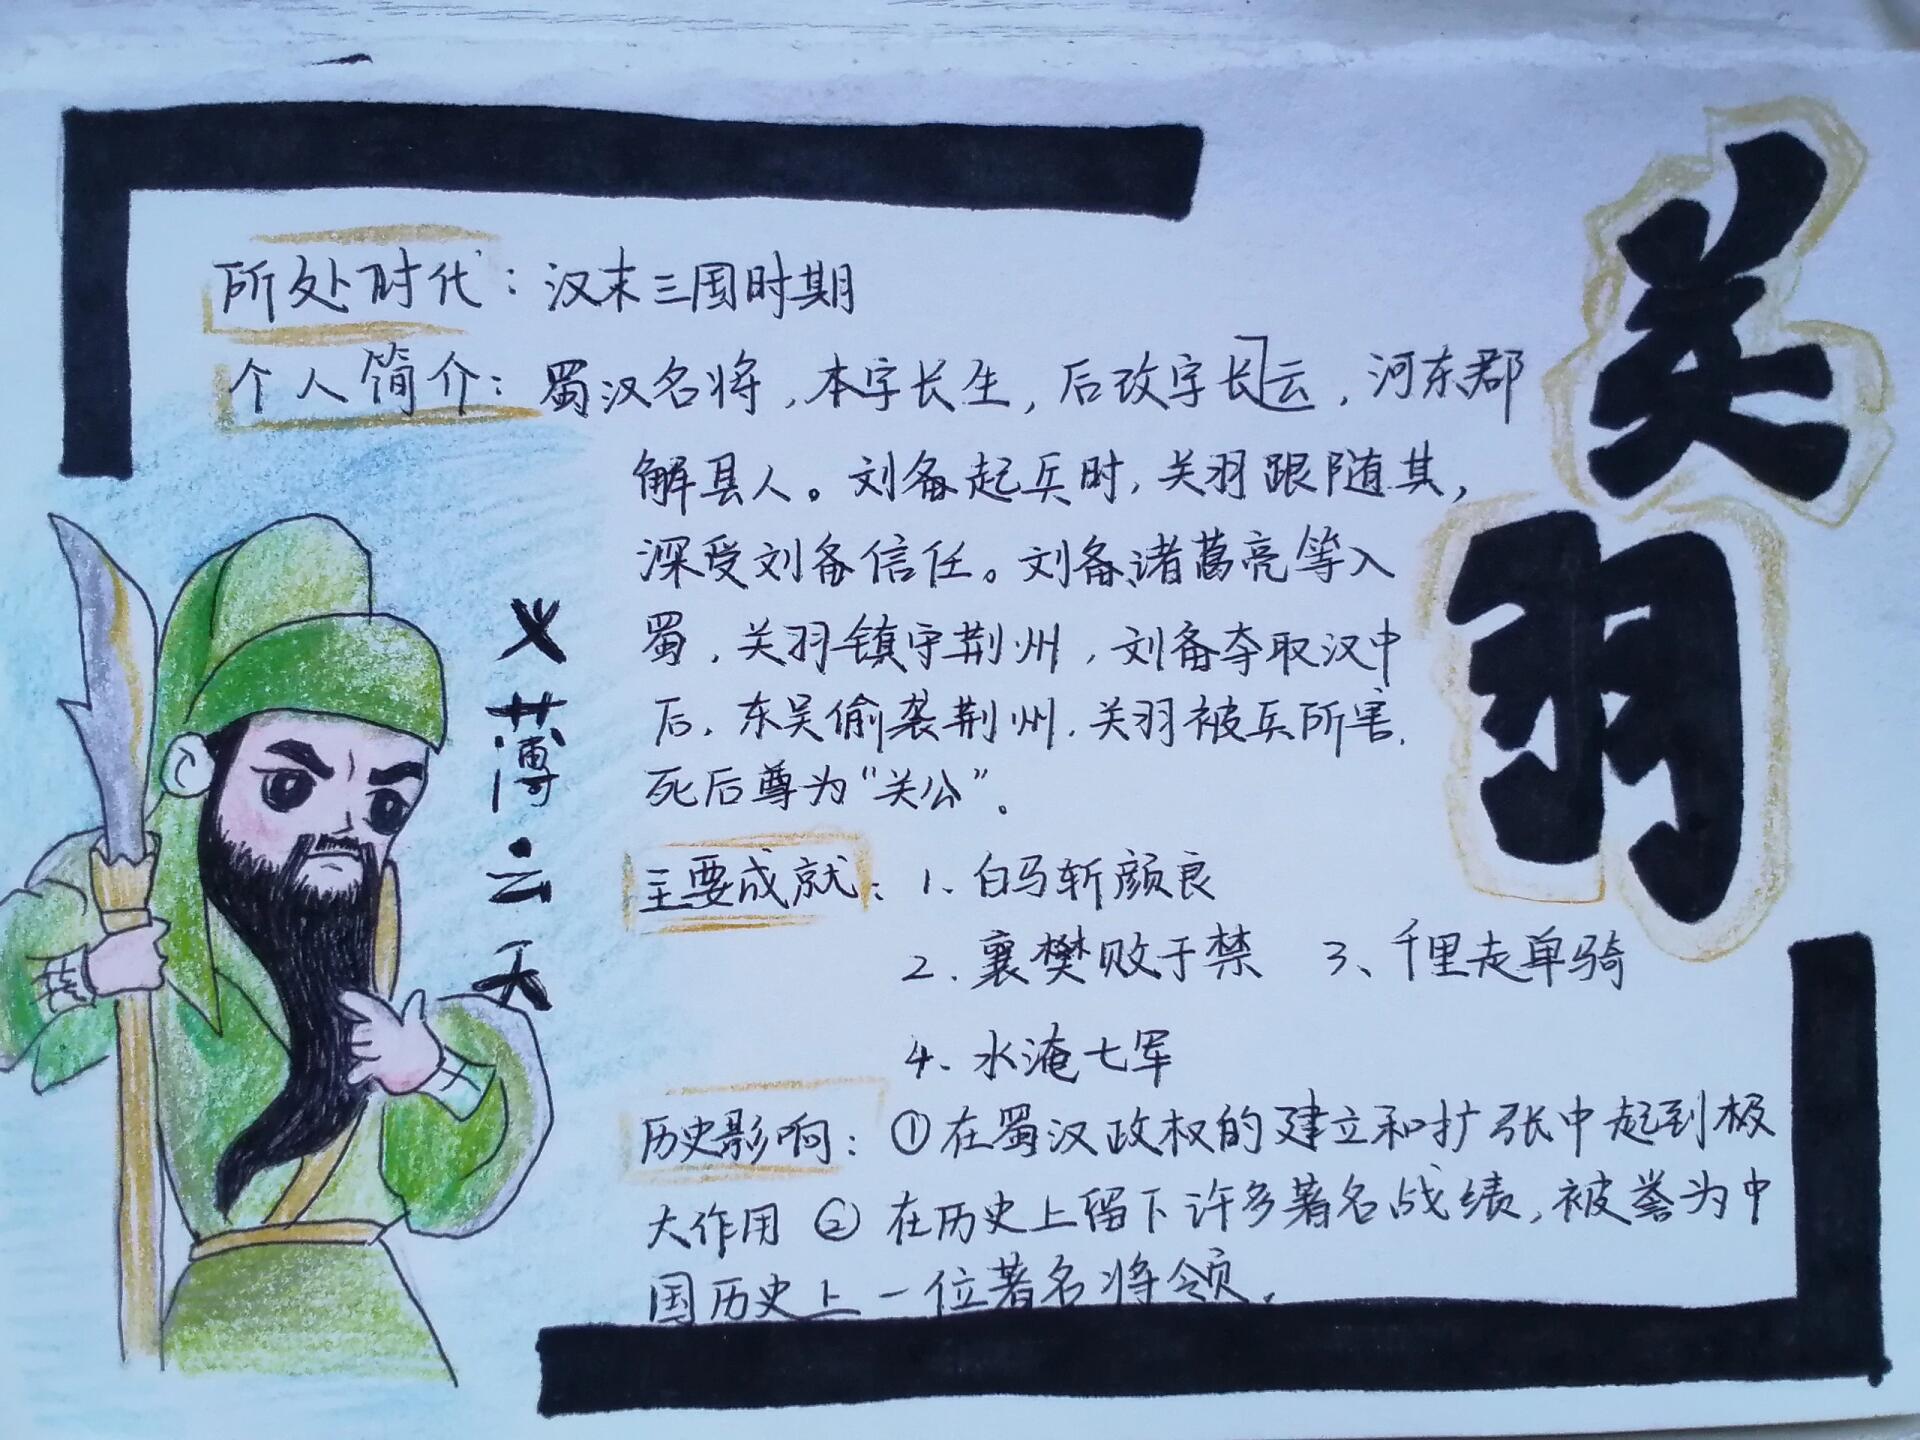 关羽
所处时代：汉末三国时期
个人简介：蜀汉名将，本字长生，后改字长云，河东郡
解县人。刘备起兵时，关羽跟随其，
深受刘备信任。刘备、诸葛亮等入
蜀，关羽镇守荆州，刘备夺取汉中
后，东吴偷袭荆州，关羽被兵所害，
死后尊为“关公”。
义薄云天
主要成就：1、白马斩颜良
2、襄樊败于禁 3、千里走单骑
4、水淹七军
历史影响：①在蜀汉政权的建立和扩张中起到极
大作用 ②在历史上留下许多著名战绩，被誉为中
国历史上一位著名将领。